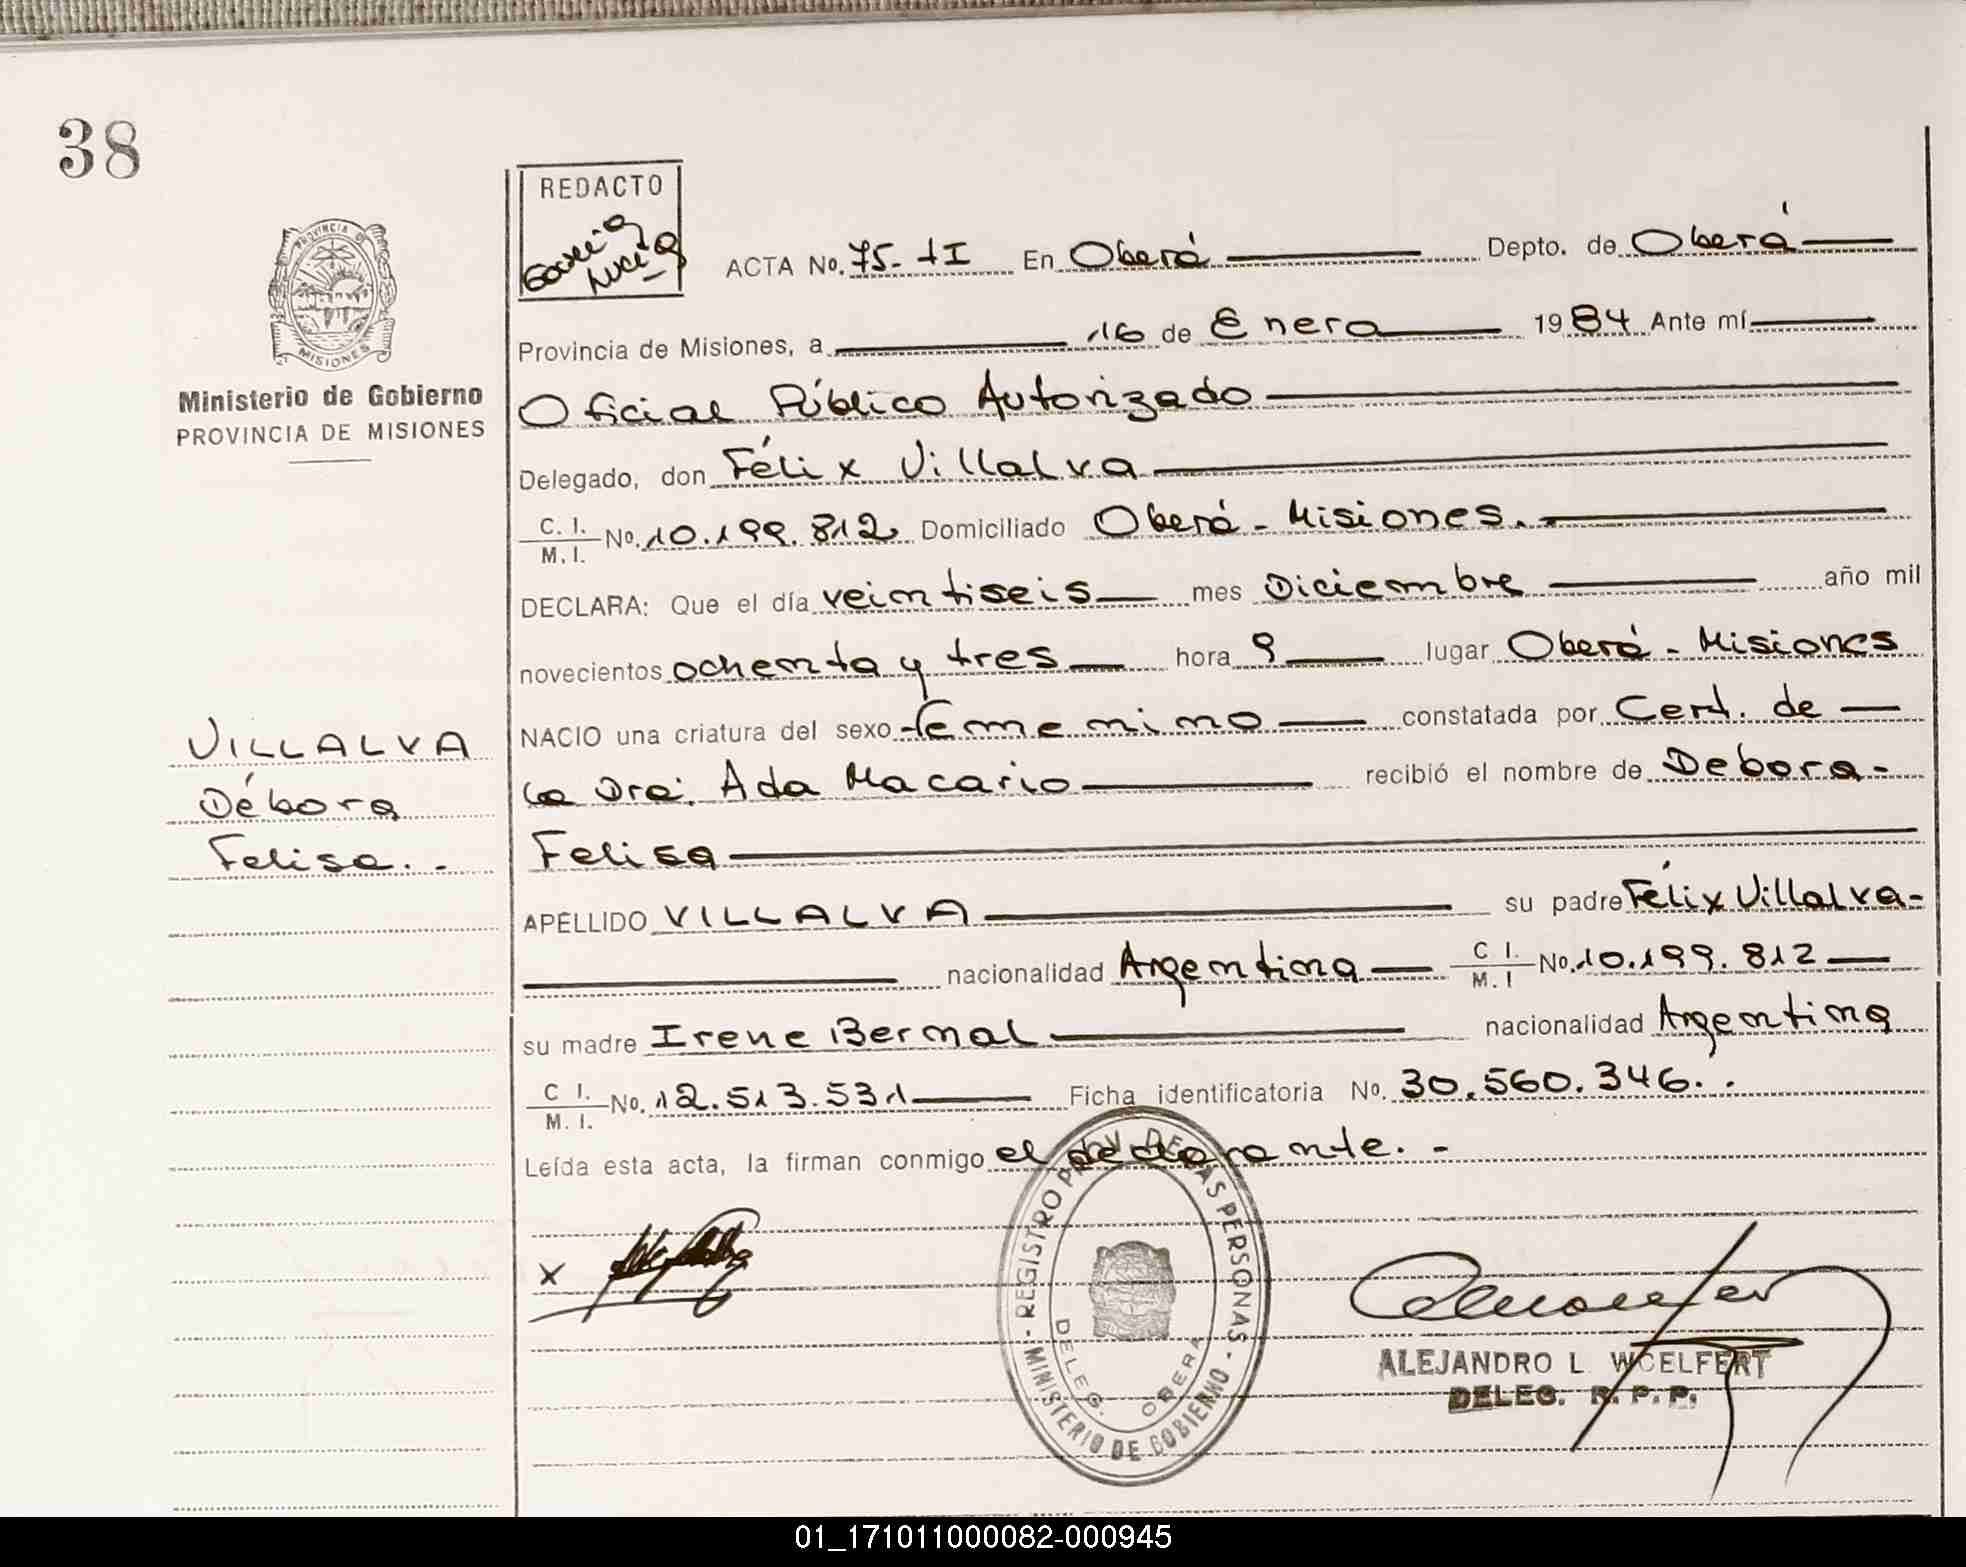 38
REDACTO
García
Lucía
PROVINCIA DE
MISIONES
Ministerio de Gobierno
PROVINCIA DE MISIONES
ACTA No. 75-tI En Oberá Depto. de Oberá
Provincia de Misiones, a 16 de Enero 1984 Ante mí
Oficial Público Autorizado
Delegado, don Félix Villalva
C. I. / M. I. No. 10.199.812 Domiciliado Oberá - Misiones.
DECLARA: Que el día veintiseis mes Diciembre año mil
novecientos ochenta y tres hora 9 lugar Oberá - Misiones
NACIO una criatura del sexo femenino constatada por Cert. de
la Dra. Ada Macario recibió el nombre de Debora
Felisa
APELLIDO VILLALVA su padre Félix Villalva
nacionalidad Argentina C I. / M. I No. 10.199.812
su madre Irene Bernal nacionalidad Argentina
C I. / M. I. No. 12.513.531 Ficha identificatoria No. 30.560.346.
Leída esta acta, la firman conmigo el declarante. -
VILLALVA
Débora
Felisa. -
X
- REGISTRO PROV. DE LAS PERSONAS -
MINISTERIO DE GOBIERNO
DELEG. OBERA
ALEJANDRO L WOELFERT
DELEG. R. P. P.
01_171011000082-000945